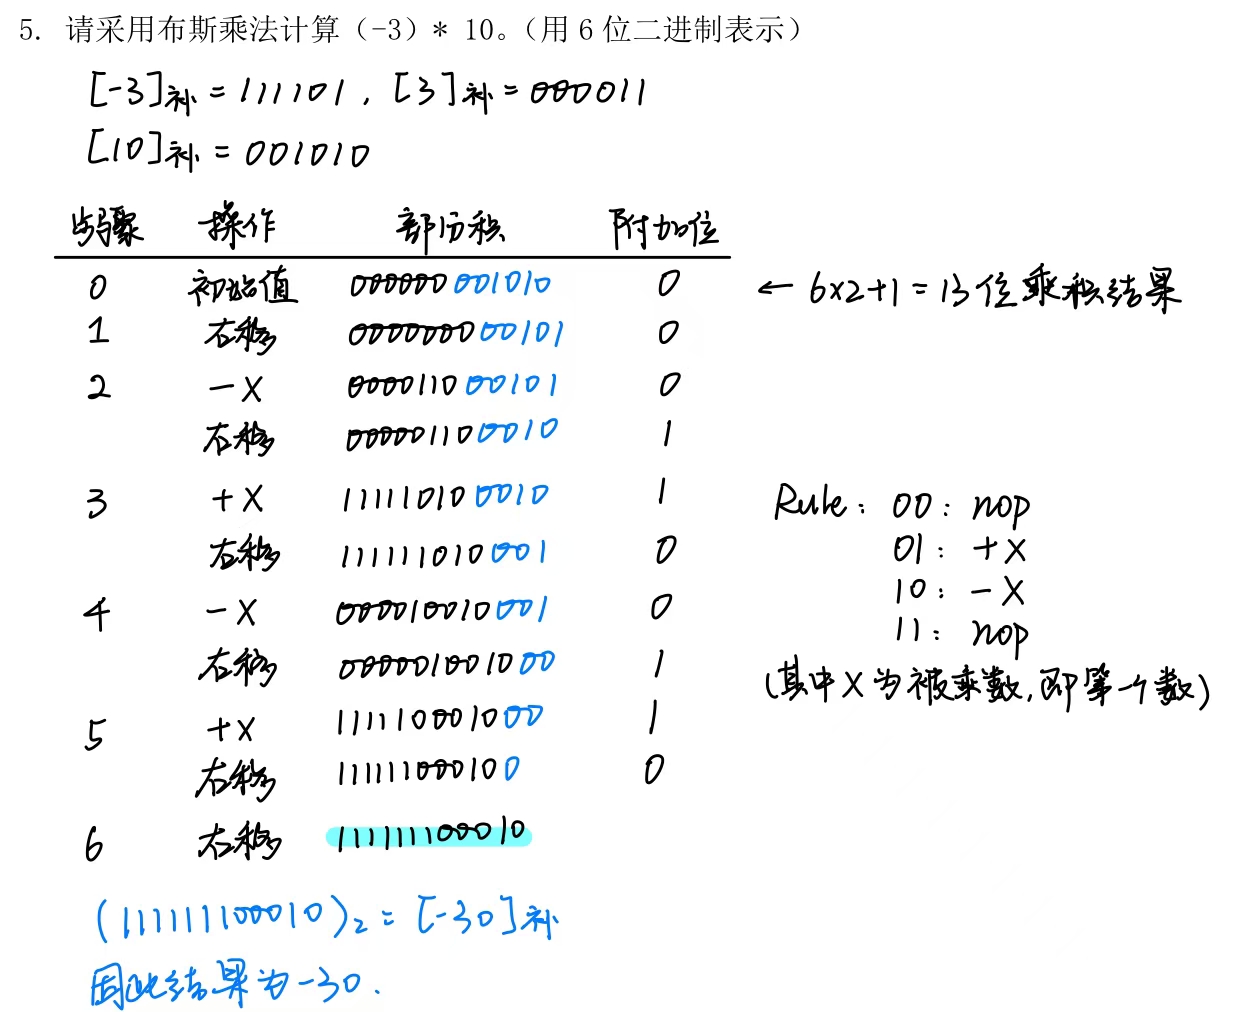 5. 请采用布斯乘法计算（-3）* 10。（用 6 位二进制表示）
[-3]补 = 111101, [3]补 = 000011
[10]补 = 001010
步骤 操作 部分积 附加位
0 初始值 000000 001010 0 ← 6×2+1=13位乘积结果
1 右移 0000000 00101 0
2 -X 0000110 00101 0
右移 00000110 0010 1
3 +X 11111010 0010 1
右移 111111010 001 0
4 -X 000010010 001 0
右移 0000010010 00 1
5 +X 1111100010 00 1
右移 11111100010 0 0
6 右移 111111100010
Rule: 00: nop
01: +X
10: -X
11: nop
(其中X为被乘数,即第一个数)
(111111100010)2 = [-30]补
因此结果为-30.